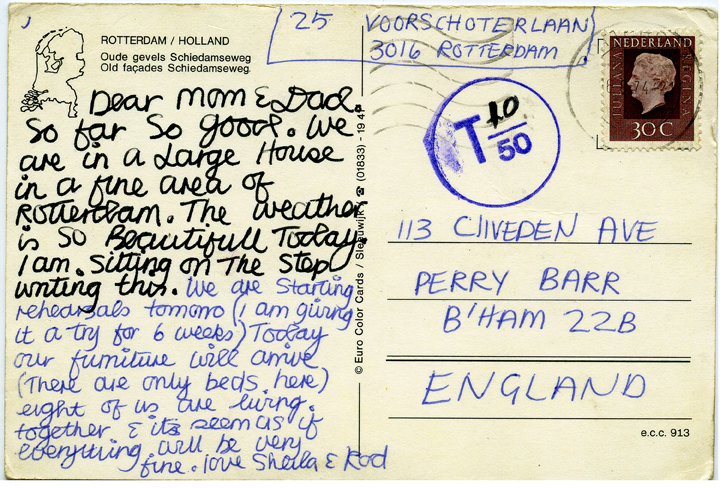 25 VOORSCHOTERLAAN
3016 ROTTERDAM
ROTTERDAM / HOLLAND
Oude gevels Schiedamseweg
Old façades Schiedamseweg.
Dear Mom & Dad.
So far So good. We
are in a Large House
in a fine area of
Rotterdam. The weather
is so Beautifull Today.
I am. Sitting on The Step
writing this. We are starting
rehearsals tomoro (I am giving
it a try for 6 weeks) Today
our furniture will arrive
(There are only beds. here)
eight of us are living.
together & its seem as if
everything will be very
fine. love Sheila & Rod
© Euro Color Cards / Sleeuwijk ☎ (01833) - 19 4
T 10/50
NEDERLAND
JULIANA REGINA
30 C
113 CLIVEDEN AVE
PERRY BARR
B'HAM 22B
ENGLAND
e.c.c. 913